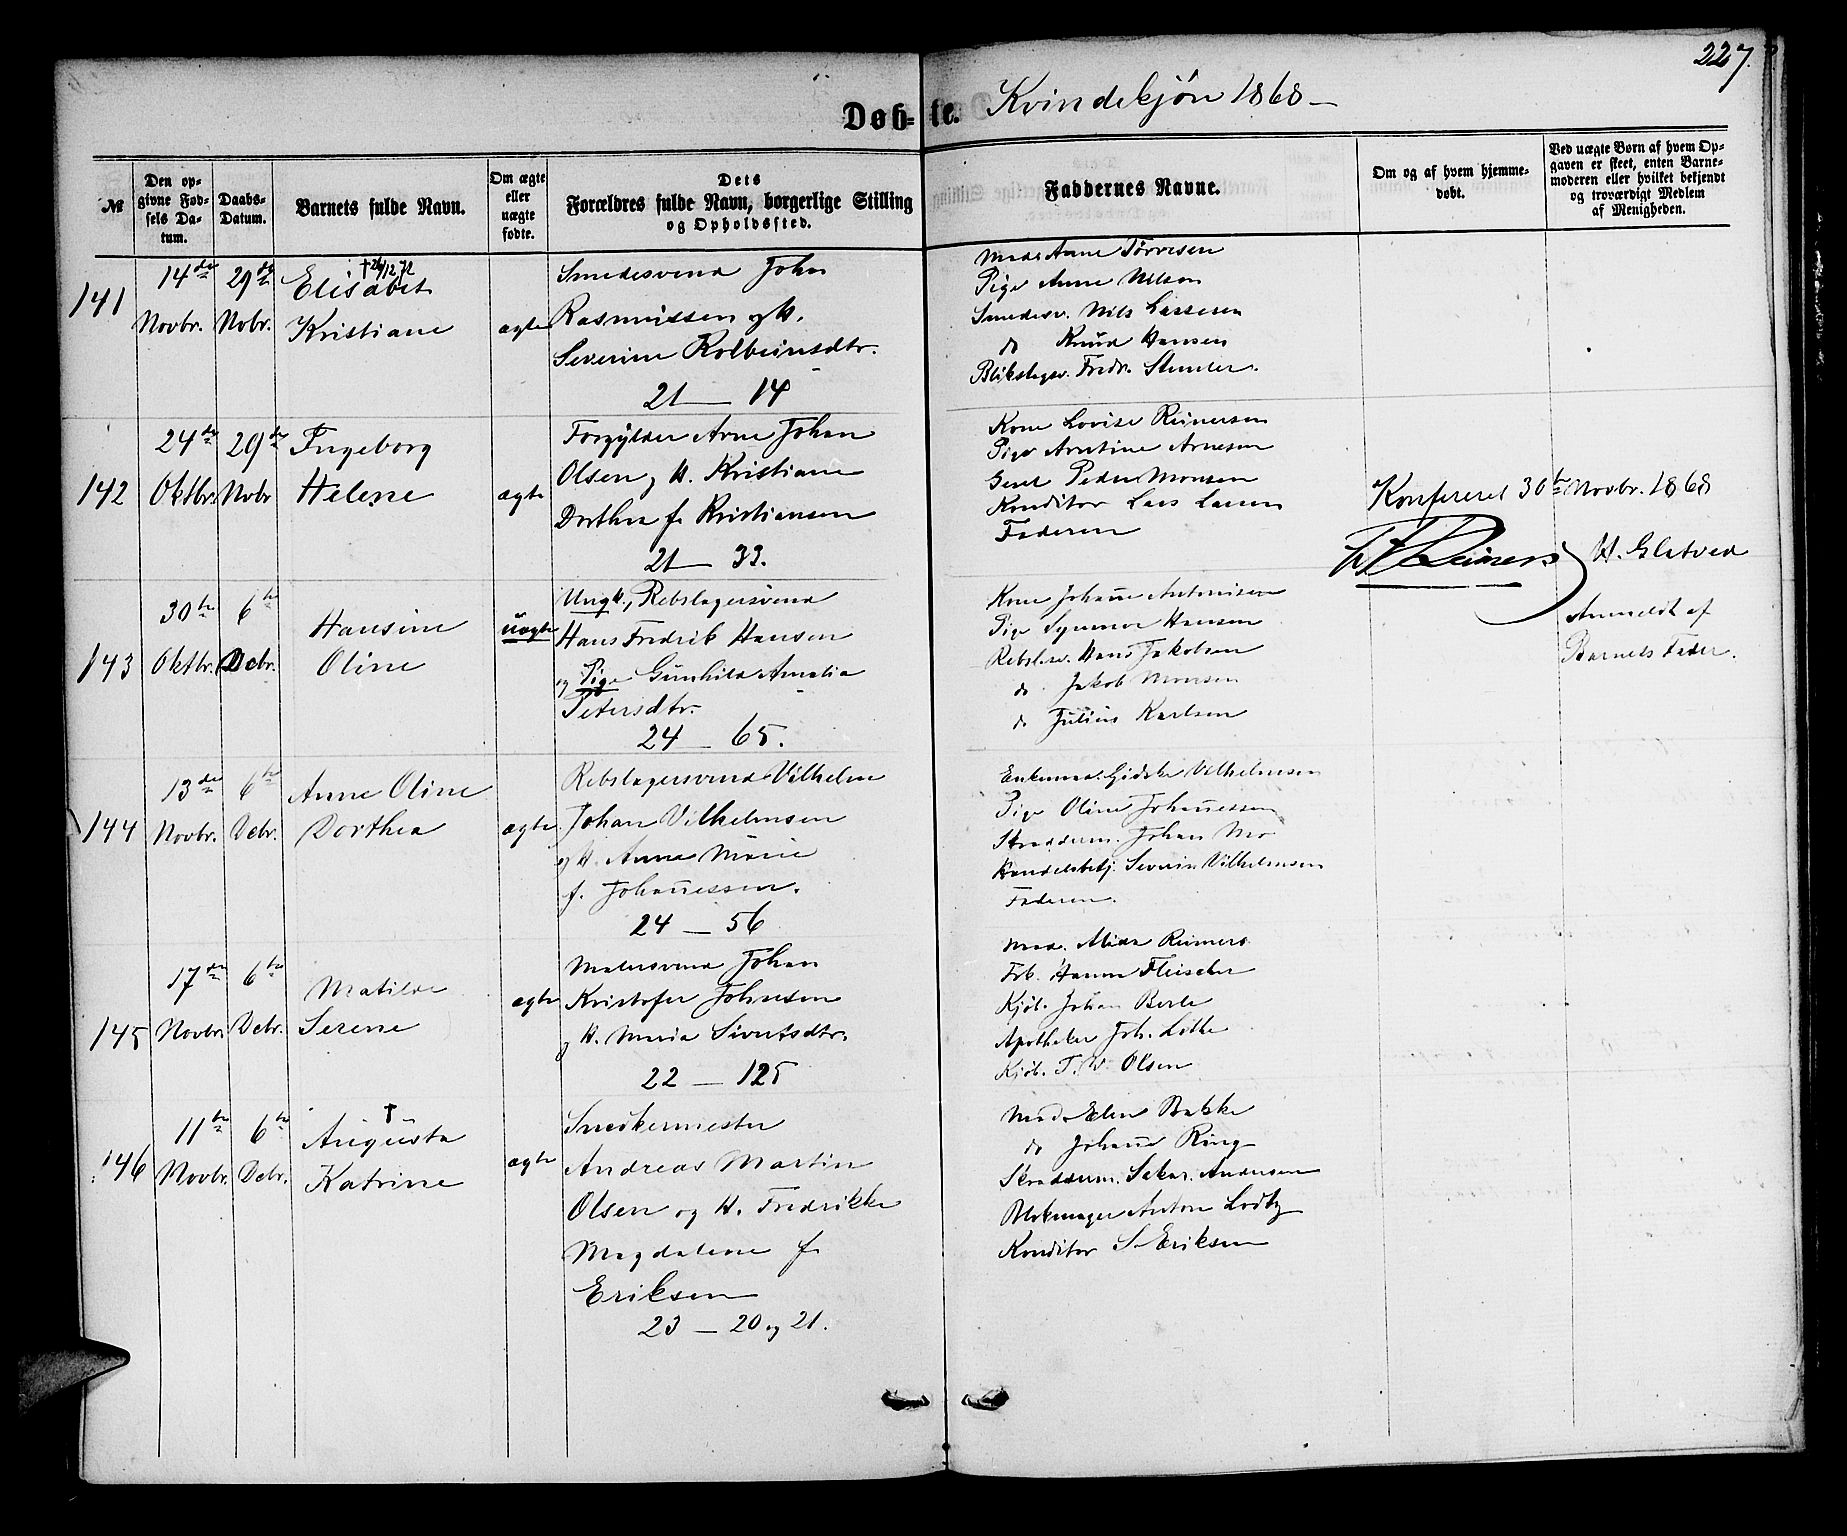 227.
Døb-te. Kvindekjøn 1868 –
№
Den op-
givne Fød-
sels Da-
tum.
Daabs-
Datum.
Barnets fulde Navn.
Om ægte
eller
uægte
fødte.
Dets
Forældres fulde Navn, borgerlige Stilling
og Opholdssted.
Faddernes Navne.
Om og af hvem hjemme-
døbt.
Ved uægte Børn af hvem Op-
gaven er skeet, enten Barne-
moderen eller hvilket bekjendt
og troværdigt Medlem
af Menigheden.
141
14de
Novbr.
29de
Nobr.
† 26/12 72
Elisabet
Kristiane
ægte
Smedesvend John
Rasmussen og H.
Severine Kolbeinsdtr.
21 – 14
Mad. Anne Torvesen
Pige Anne Nilson
Smedesv. Nils Lassesen
do Knud Hansen
Blikslagsv. Fredr. Stimler.
142
24de
Oktbr.
29de
Nobr
Ingeborg
Helene
ægte
Forgylder Arne Johan
Olsen og H. Kristiane
Dorthea f. Kristiansen
21 – 33.
Kone Lovise Reinersen
Pige Arntine Arnesen
Gesel Peder Monsen
Konditor Lars Larsen
Faderen
Konfereret 30te Novbr. 1868
Reimers
H. Glatved
143
30te
Oktbr.
6te
Debr.
Hansine
Oline
uægte
Ungk., Rebslagersvend
Hans Fredrik Hansen
og Pige Gunhild Amalia
Petersdtr.
24 – 65.
Kone Johanne Antonisen
Pige Synnøve Hansen
Rebslsv. Hans Jakobsen
do. Jakob Monsen
do Julius Karlsen
Anmeldt af
Barnets Fader.
144
13de
Novbr.
6te
Debr.
Anne Oline
Dorthea
ægte
Rebslagersvend Vilhelm
Johan Vilhelmsen
og H. Anne Marie
f. Johannessen.
24 – 56
Enkemad. Gidske Vilhelmsen
Pige Oline Johannessen
Skrædderm. Johan Mo
Handelsbetj. Severin Vilhelmsen
Faderen.
145
17de
Novbr.
6te
Debr.
Matilde
Serene
ægte
Malersvend Johan
Kristofer Johnsen
og H. Maria Sivertsdtr.
22 – 125
Mad. Alida Reimers
Frk. Hanna Fleischer
Kjøb. Johan Berle
Apotheker Joh. Lothe
Kjøb. T. W. Olsen
146
11te
Novbr.
6te
Debr.
†
Augusta
Katrine
ægte
Snedkermester
Andreas Martin
Olsen og H. Fredrikke
Magdalene f.
Eriksen
23 – 20 og 21.
Mad. Elen Bakke
do Johanne Ring
Skrædderm. Sakar. Andersen
Blokmager Anton Lodtz
Konditor S. Eriksen